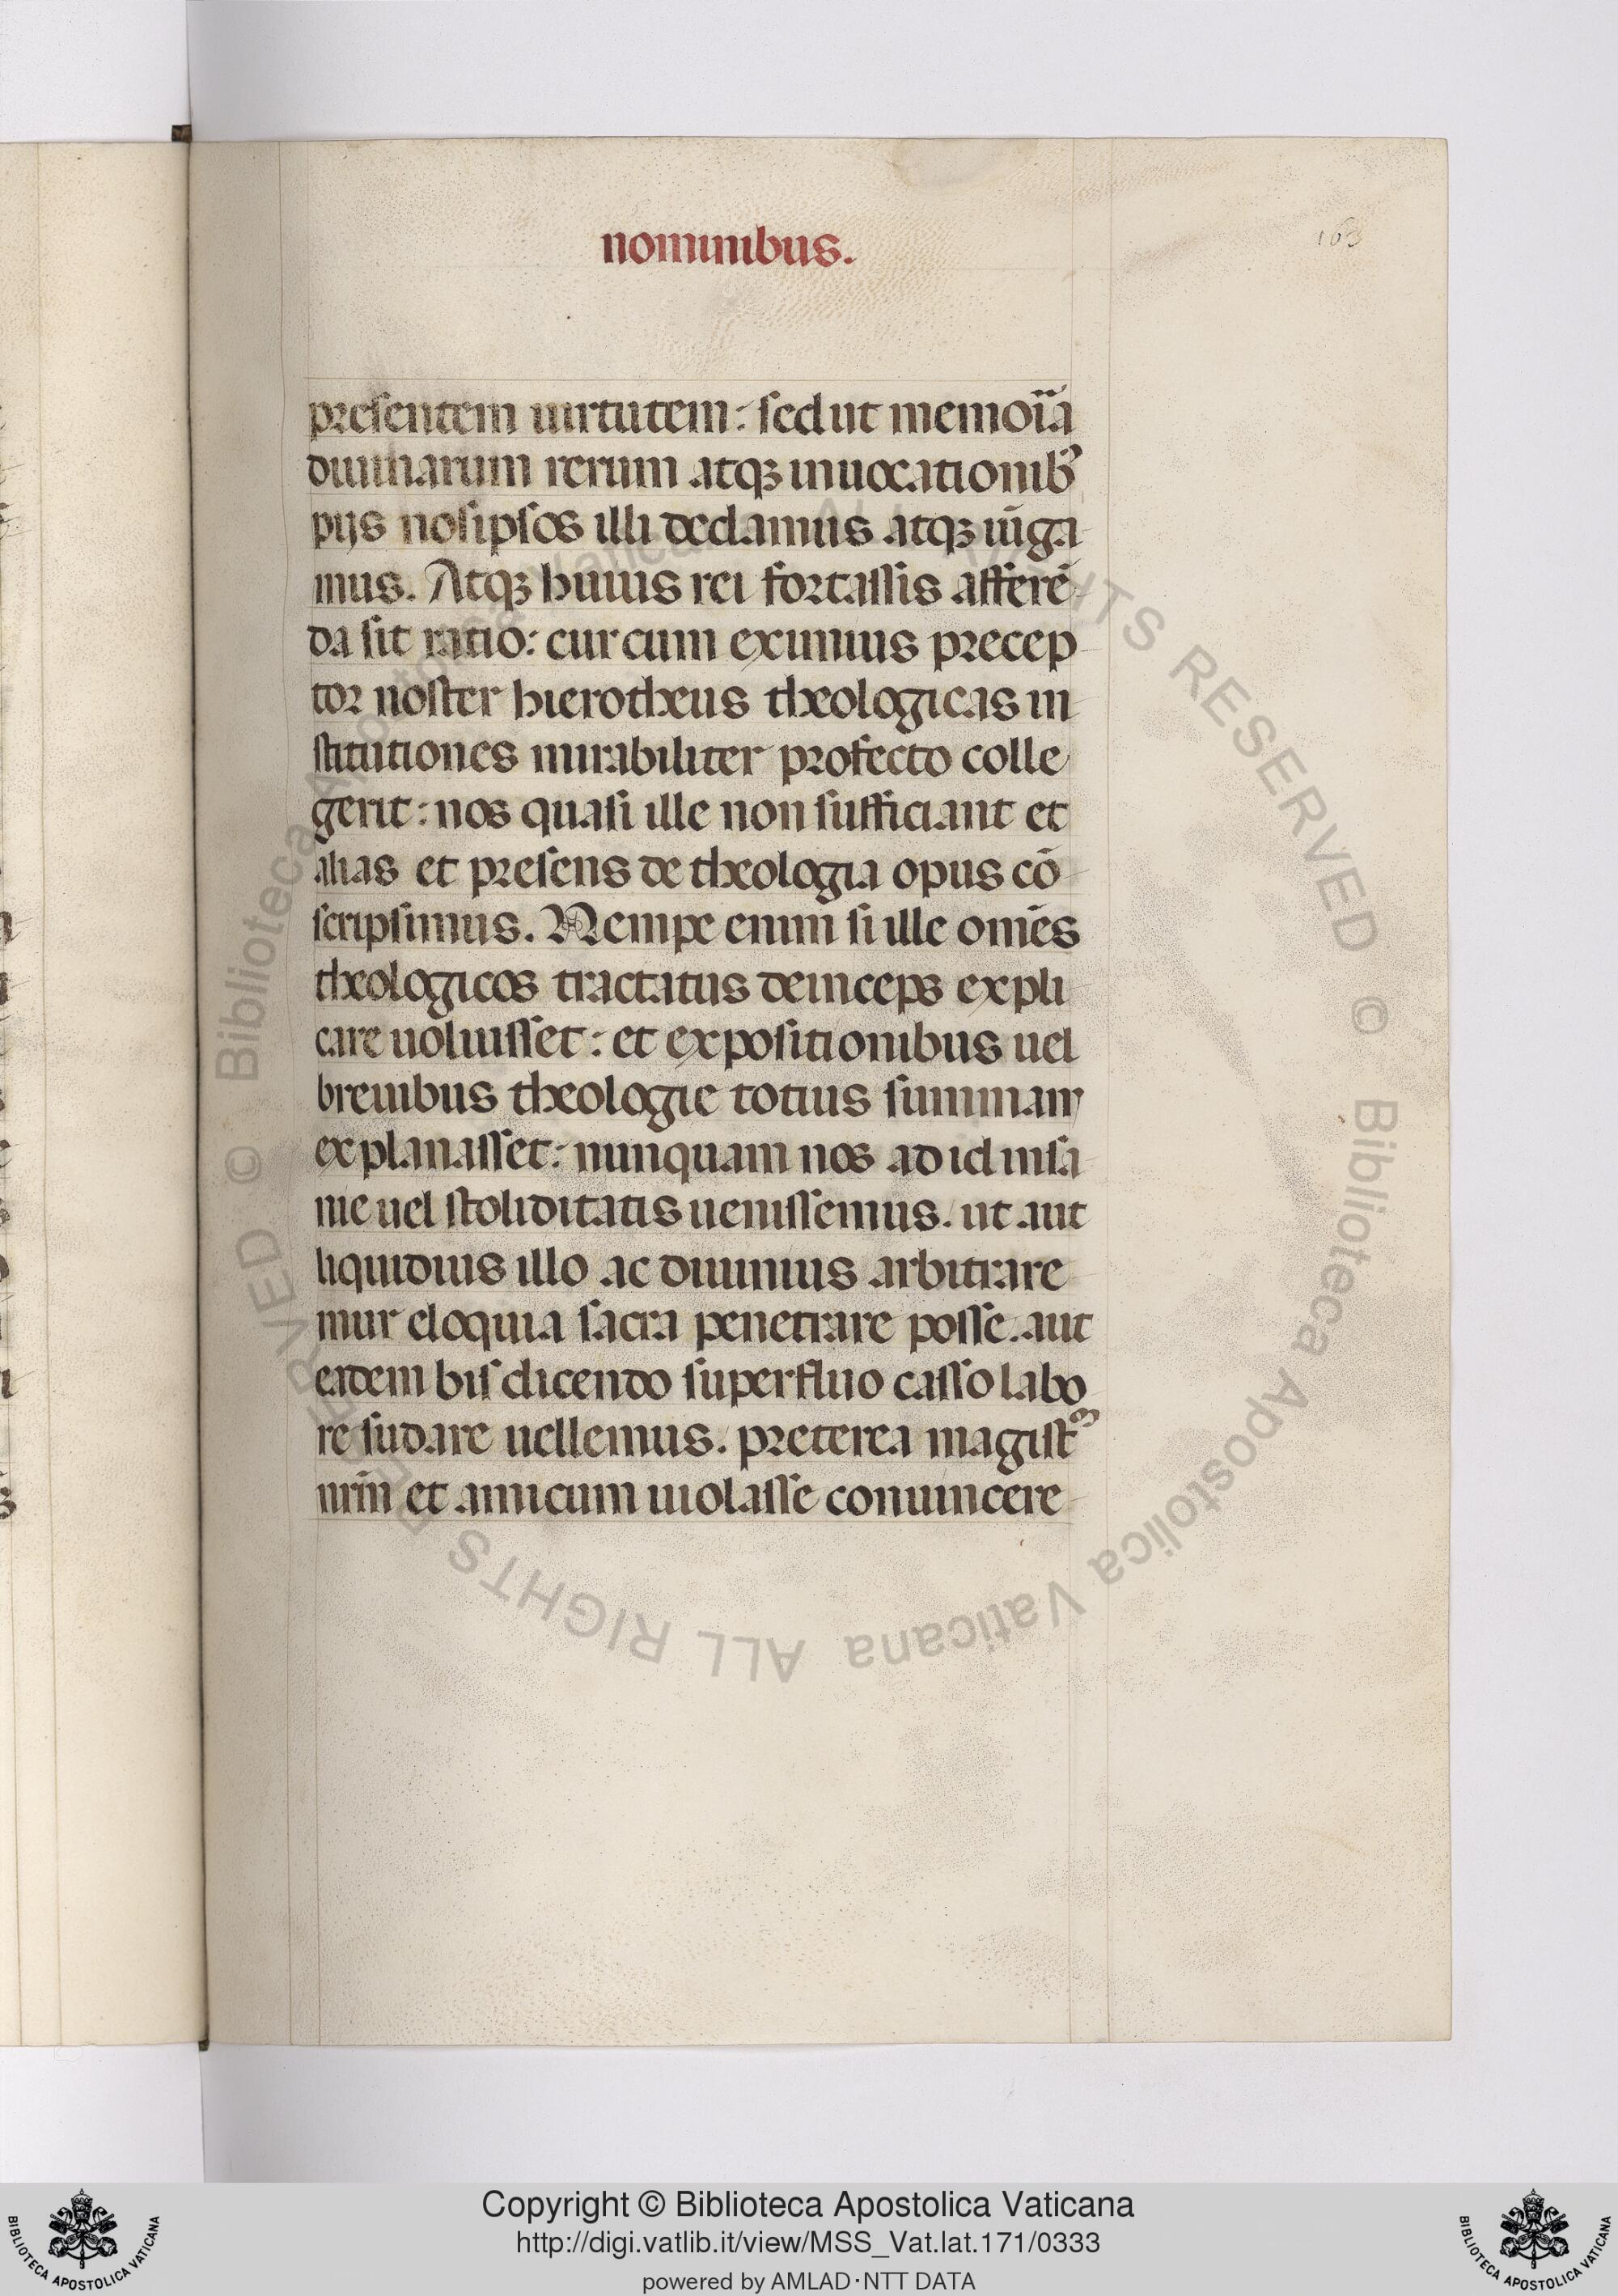 nominibus.
163
presentem uirtutem: sed ut memoĩa
diuinarum rerum atqꝫ inuocationibꝰ
pijs nosipsos illi dedamus atqꝫ iũga
mus. Atqꝫ huius rei fortassis afferẽ
da sit ratio: cur cum eximius precep
tor noster hierotheus theologicas in
stitutiones mirabiliter profecto colle
gerit: nos quasi ille non sufficiant et
alias et presens de theologia opus cō
scripsimus. Nempe enim si ille om̄es
theologicos tractatus deinceps expli
care uoluisset: et expositionibus uel
breuibus theologie totius summam
explanasset: nunquam nos ad id insa
nie uel stoliditatis uenissemus. ut aut
liquidius illo ac diuinius arbitrare
mur eloquia sacra penetrare posse. aut
eadem bis dicendo superfluo casso labo
re sudare uellemus. preterea magistꝝ
nr̄m et amicum uiolasse conuincere
© Biblioteca Apostolica Vaticana ALL RIGHTS RESERVED © Biblioteca Apostolica Vaticana ALL RIGHTS RESERVED
Copyright © Biblioteca Apostolica Vaticana
http://digi.vatlib.it/view/MSS_Vat.lat.171/0333
powered by AMLAD·NTT DATA
BIBLIOTECA APOSTOLICA VATICANA
BIBLIOTECA APOSTOLICA VATICANA